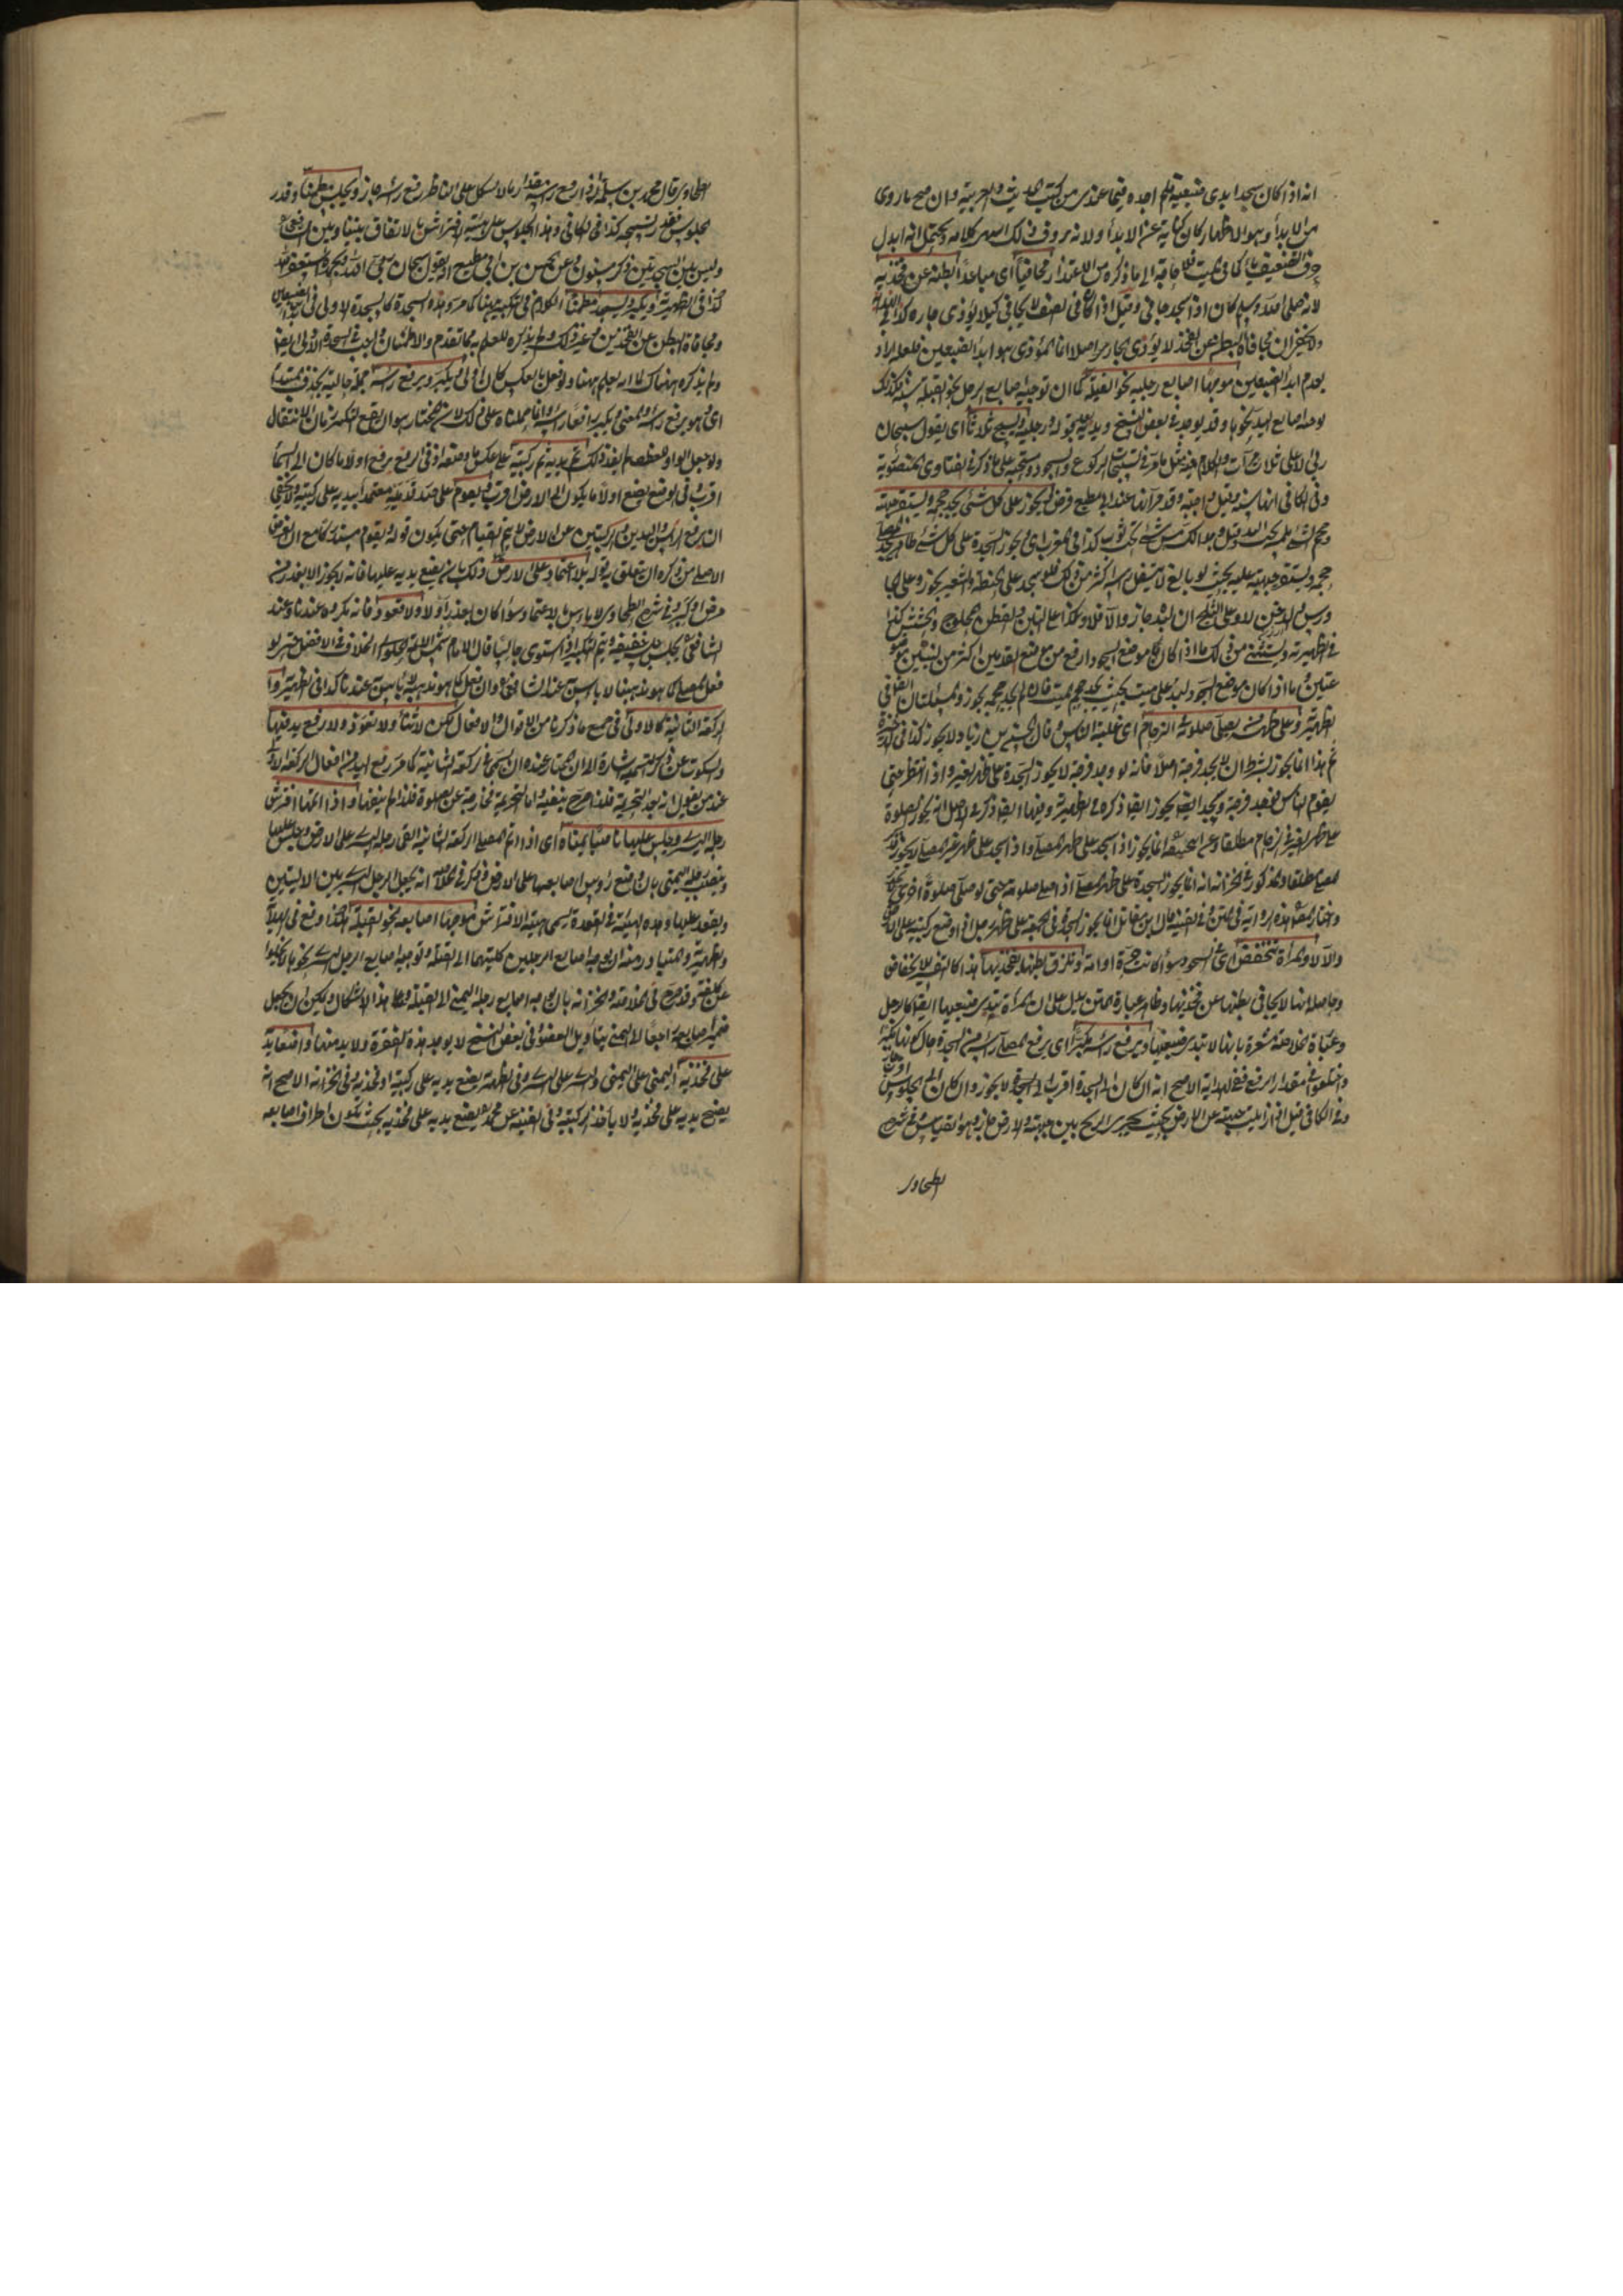 انه اذا كان سجد ابدى ضبعيه فلم اجده فيما عندى من كتب الحديث والعربية وان صح ما روى
من الابداء وهو الاظهار كان كناية عن الابداء ولانه معروف ذلك كلامه ويحتمل انه ابدل
حرف التضعيف ياء كما فى فلا حاجة الى ما ذكره من الاعتذار مجافيا اى مباعدا بطنه عن فخذيه
لانه صلى الله وسلم كان اذا سجد جافى وقيل اذا كان فى الصف لا يجافى كيلا يؤذى جاره كذا فى
ولا يخفى ان مجافاة البطن عن الفخذ لا يؤذى الجار اصلا انما المؤذى هو ابداء الضبعين فلعله اراد
بعدم ابداء الضبعين موجها اصابع رجليه نحو القبلة كما ان توجيه اصابع الرجل نحو القبلة سنة فكذلك
توجيه اصابع اليد نحوها وقد يوجد فى بعض النسخ ويديه بعد قوله رجليه ويسبح ثلاثا اى يقول سبحان
ربى الاعلى ثلاث مرات والكلام فيه مثل ما مر فى تسبيحات الركوع والسجود وستحبه على ما ذكر فى الفتاوى الصوفية
وفى الكافى انها سنة وقيل واجبة وقد مر انها عند ابى مطيع فرض ويجوز على كل شئ يجد حجمه ويستقر جبهته
حجم الشئ تحت اليد وقيل هو ما لك من شئ تحت ثوب كذا فى المغرب اى يجوز السجدة على كل شئ طاهر يجد
حجمه ويستقر جبهته عليه بحيث لو بالغ لا يتسفل راسه اكثر من ذلك فلو سجد على الحنطة والشعير يجوز وعلى
ورس الدخن لا وعلى الثلج ان لبده جاز والا فلا وهكذا على التبن والقطن المحلوج والحشيش كذا
فى الظهيرية ويستثنى من ذلك ما اذا كان موضع السجود ارفع من موضع القدمين اكثر من لبنتين
وما اذا كان موضع السجود لبد على ميت بحيث يجد حجم الميت فان لم يجد حجمه يجوز والمسئلتان ايضا فى
الظهيرية وعلى ظهر من يصلى صلوته الزحام اى غلبة الناس وقال الحسن بن زياد لا يجوز كذا فى
ثم هذا انما يجوز بشرط ان لا يجد فرجة اصلا فانه لو وجد فرجة لا يجوز السجدة على ظهر الغير واذا انتظر حتى
يقوم الناس فيجد فرجة ويجد ايضا يجوز ايضا ذكره فى الظهيرية وفيها ايضا ذكر فى الاصل انه يجوز الصلوة
على ظهر الغير فى الزحام مطلقا وعن ابى حنيفة انما يجوز اذا سجد على ظهر المصلى واذا سجد على ظهر غير المصلى لا يجوز
مطلقا والمذكور فى الخزانة انه انما يجوز السجدة على ظهر المصلى اذا صلى صلوته حتى لو صلى صلوة اخرى
واختار المص هذه الرواية فى المتن وفى القنية قال ابن مقاتل انما يجوز السجدة فى الجمعة على ظهر رجل اذا وضع ركبتيه على
والا لا والمرأة تنخفض اى فى السجود سواء كانت حرة او امة وتلزق بطنها بفخذيها هذا كالتفسير للانخفاض
وحاصله انها لا يجافى بطنها عن فخذيها وظاهر عبارة المتن يدل على ان المرأة تبدى ضبعيها ايضا كالرجل
وعبارة الخلاصة مشعرة بانها لا تبدى ضبعيها ويرفع راسه مكبرا اى يرفع المصلى راسه من السجدة حال كونه
واختلفوا فى مقدار الرفع ففى الهداية الاصح انه ان كان الى السجدة اقرب الى السجود لا يجوز وان كان الى الجلوس
وفى الكافى قيل اذا زايلت جبهته عن الارض بحيث يجرى الريح بين جبهته والارض جاز وهو القياس وفى شرح
الطحاوى
الطحاوى قال محمد بن سلمة اذا رفع راسه مقدار ما لا يشكل على الناظر رفع راسه جاز ويجلس مطمئنا وقدر
الجلوس بقدر تسبيحة كذا فى الكافى وهذا الجلوس على هيئة الافتراش بالاتفاق بيننا وبين الشافعى
وليس بين السجدتين ذكر مسنون وعن الحسن بن ابى مطيع انه يقول سبحان الله وبحمده استغفر الله
كذا فى الظهيرية ويكبر ويسجد مطمئنا الكلام فى التكبير ههنا كما مر وهذه السجدة كالسجدة الاولى فى
ومجافاة البطن عن الفخذين وغير ذلك ولم يذكره للعلم به مما تقدم والاطمئنان واجب فى السجدة الاولى ايضا
ولم يذكره هناك لما انه يعلم ههنا ولو فعل بالعكس كان اولى ويكبر ويرفع راسه جملة حالية بحذف المبتدأ
اى وهو يرفع راسه والمعنى ويكبر رافعا راسه وانما حملناه على ذلك لان المختار هو ان يقع التكبير زمان الانتقال
ولو جعل الواو للعطف لم يفد ذلك ثم يديه ثم ركبتيه على عكس ما وضعه اذ فى الرفع يرفع اولا ما كان الى السماء
اقرب وفى الوضع يضع اولا ما يكون الى الارض اقرب ويقوم على صدور قدميه معتمدا بيديه على ركبتيه ولا يخفى
ان رفع الراس واليدين والركبتين عن الارض لا يتم القيام حتى يكون قوله ويقوم مستدركا مع ان الغرض
الاصلى من ذكره ان يتعلق به قوله بلا اعتماد على الارض وذلك بان يضع يديه عليها فانه لا يجوز الا بعذر من
مرض او كبر وفى شرح الطحاوى لا باس بالاعتماد سواء كان بعذر او لا ولا قعود فانه مكروه عندنا وعند
الشافعى يجلس جلسة خفيفة ويتم التكبير اذا استوى جالسا قال الامام شمس الائمة الحلوانى الخلاف فى الافضل حتى لو
فعل المصلى كما هو مذهبنا لا باس به عند الشافعى وان فعل كما هو مذهبه لا باس به عندنا كذا فى الظهيرية
الركعة الثانية كالاولى فى جميع ما ذكرنا من الاقوال والافعال لكن لا ثناء ولا تعوذ ولا يرفع يديه فيها
والسكوت عن ذكر التسمية اشارة الى ان المختار عنده ان يسمى فى الركعة الثانية كما مر رفع اليد من افعال الركعة الاولى
عند من يقول انه بعد التحريمة فلذا صرح بنفيه واما التحريمة فخارجة عن الصلوة فلذا لم ينفها واذا اتمها افترش
رجله اليسرى وجلس عليها ناصبا يمناه اى اذا اتم المصلى الركعة الثانية القى رجله اليسرى على الارض وجلس عليها
وينصب رجله اليمنى بان وضع رؤس اصابعها على الارض وذكر فى الخلاصة انه يجعل الرجل اليسرى بين الاليتين
ويقعد عليها وهذه الهيئة فى القعدة تسمى هيئة الافتراش موجها اصابعه نحو القبلة هكذا وقع فى الهداية
والظهيرية والمتبادر منه ان يوجه اصابع الرجلين كليتهما الى القبلة وتوجيه اصابع الرجل اليسرى نحوها لا يخلو
عن كلفة وقد صرح فى الخلاصة والخزانة بان يوجه اصابع رجله اليمنى الى القبلة وعلى هذا لا اشكال ويمكن ان يجعل
ضمير اصابعه راجعا الى اليمنى بتأويل العضو وفى بعض النسخ لا يوجد هذه الفقرة ولا بد منها واضعا يديه
على فخذيه اليمنى على اليمنى واليسرى على اليسرى وفى الظهيرية يضع يديه على ركبتيه او فخذيه وفى الخزانة الاصح انه
يضع يديه على فخذيه ولا ياخذ الركبة وفى القنية عن محمد يضع يديه على فخذيه بحيث يكون اطراف اصابعه